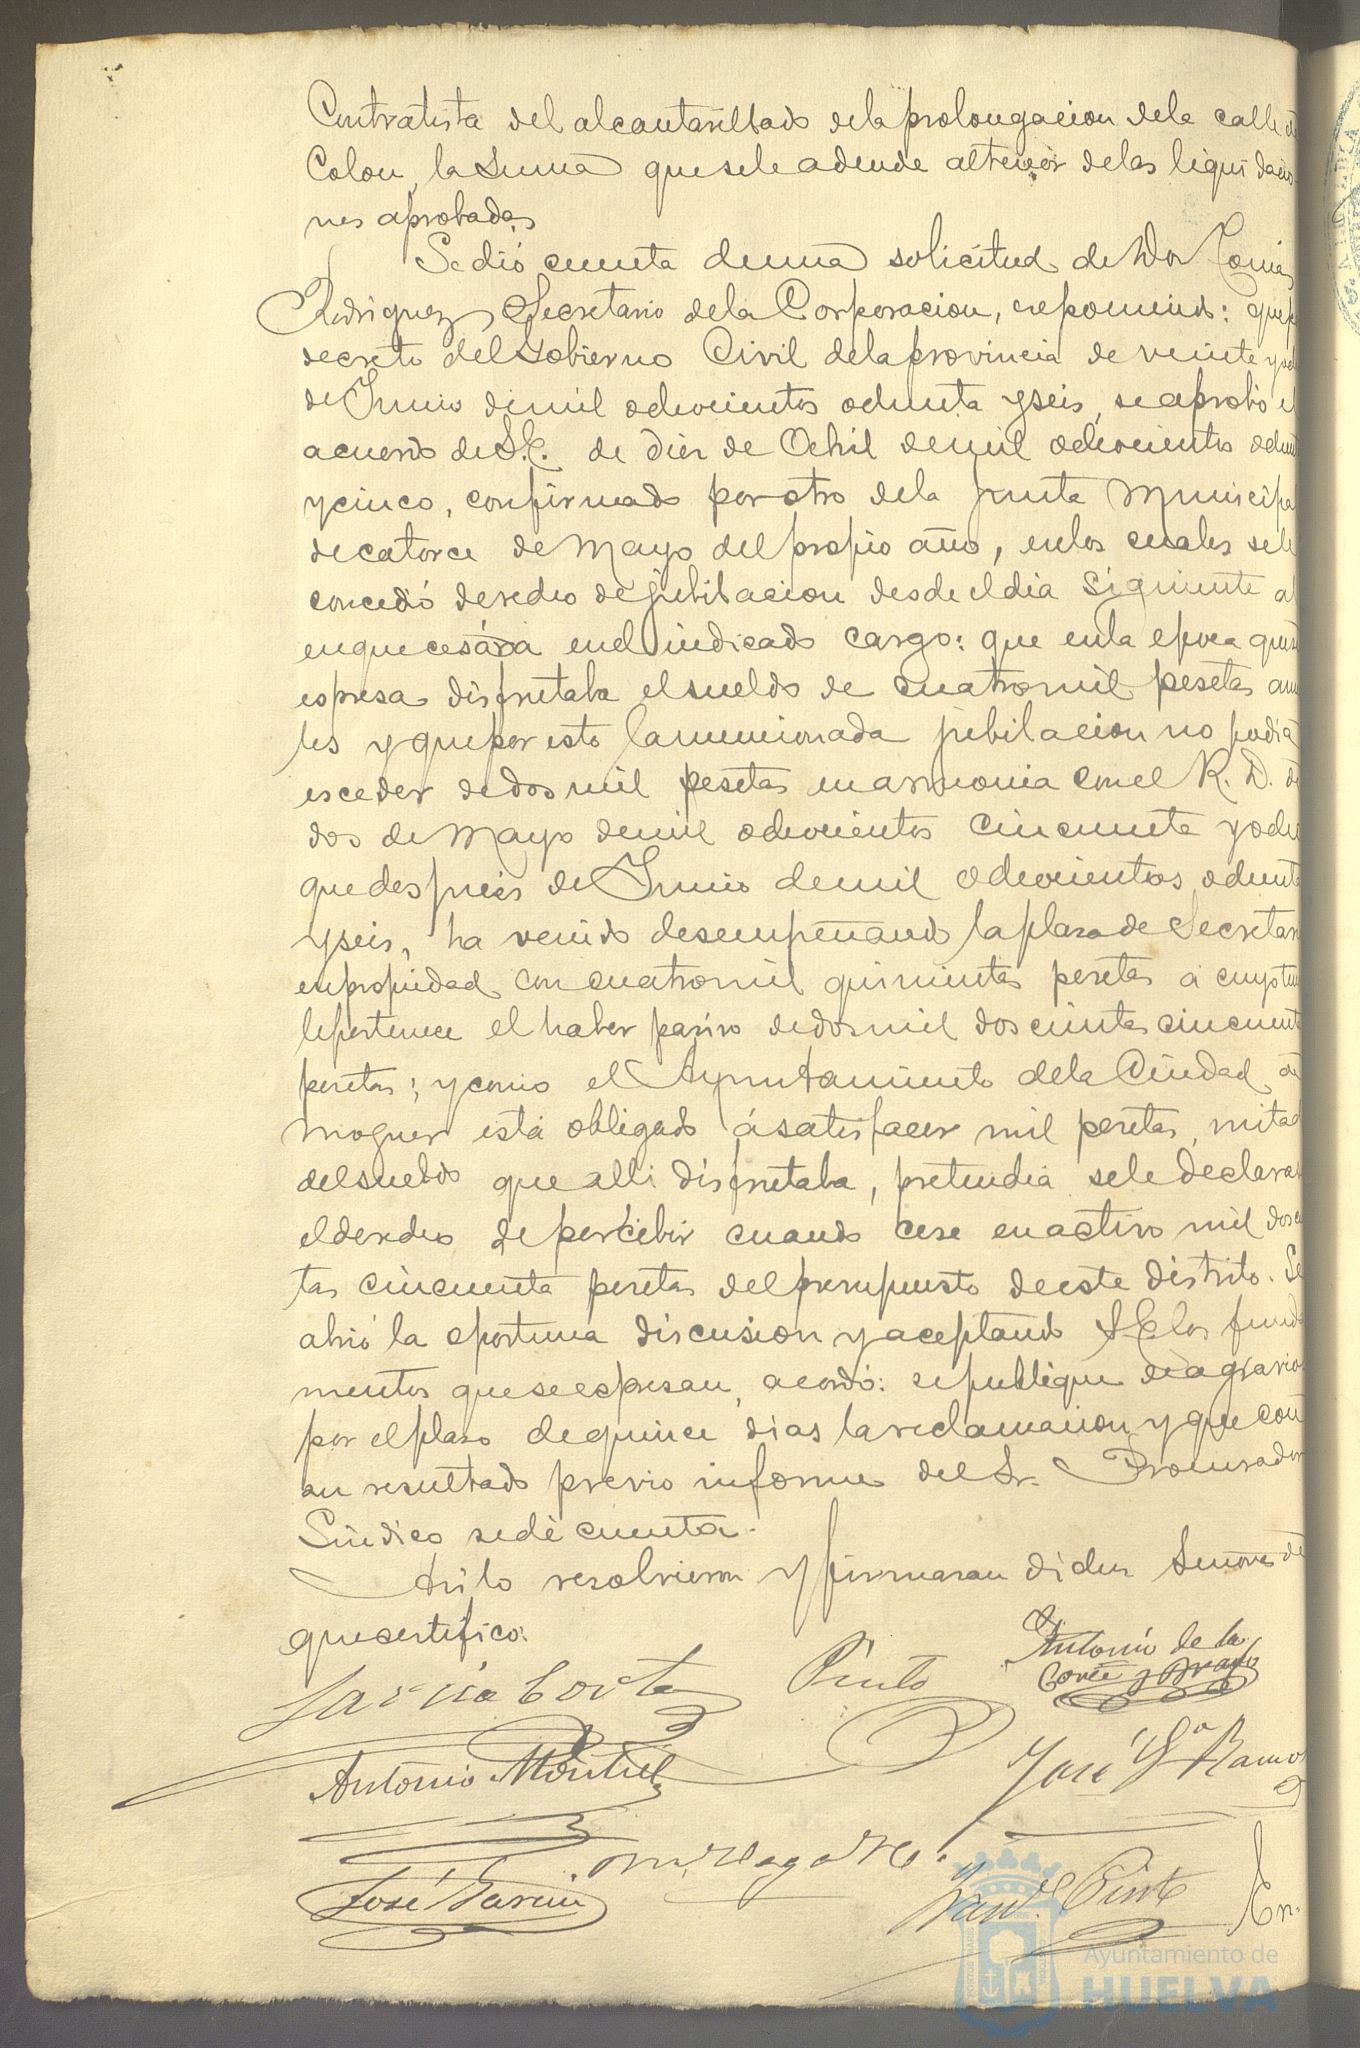 Contratista del alcantarillado dela prolongacion dela calle de
Colon, la suma que sele adeude al tenor delas liquidacio
nes aprobadas
Se dió cuenta deuna solicitud de Don Tomás
Rodriguez Secretario dela Corporacion, esponiendo: que por
decreto del Gobierno Civil dela provincia de veinte y
de Junio demil ochocientos ochenta y seis, se aprobó el
acuerdo de S.E. de diez de Abril demil ochocientos ochenta
y cinco, confirmado por otro dela Junta Municipal
de catorce de Mayo del propio año, enlos cuales sele
concedió derecho de jubilacion desde el dia siguiente al
en que cesára enel indicado cargo: que enla epoca que se
espresa disfrutaba el sueldo de cuatromil pesetas anua
les y que por esto la mencionada jubilacion no podia
esceder dedos mil pesetas en armonia con el R. D. de
dos de Mayo demil ochocientos cincuenta y ocho
que despues de Junio demil ochocientos ochenta
y seis, ha venido desempeñando la plaza de Secretario
en propiedad con cuatromil quinientas pesetas á cuyo tenor
le pertenece el haber pasivo dedos mil doscientas cincuenta
pesetas; y como el Ayuntamiento dela Ciudad de
Moguer está obligado á satisfacer mil pesetas, mitad
del sueldo que alli disfrutaba, pretendia sele declarase
el derecho de percibir cuando cese en activo mil doscien
tas cincuenta pesetas del presupuesto de este distrito. Se
abrió la oportuna discusion y aceptando S.E. los funda
mentos que se espresan, acordó: se publique de agravios
por el plazo de quince dias la reclamacion y que con
su resultado previo informe del Sr. Procurador
Sindico se dé cuenta.
Asi lo resolvieron y firmaran dichos Señores de
que certifico:
Garcia Cortes Pinto Antonio de la
Corte y Bravo
Antonio Montiel José Ga Ramos
José Garcia Pinto
En.
Ayuntamiento de
HUELVA